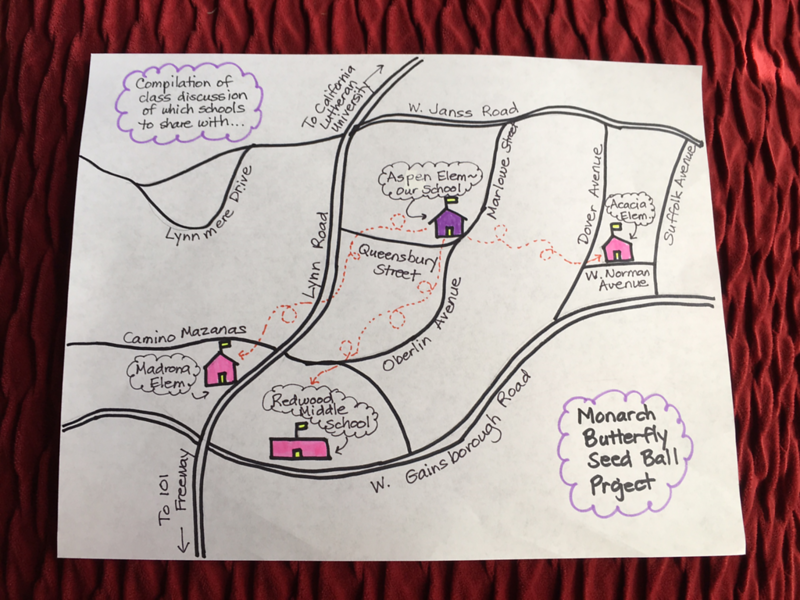 Compilation of
class discussion
of which schools
to share with...
To California
Lutheran
University
W. Janss Road
Lynnmere Drive
Aspen Elem~
Our School
Marlowe Street
Dover Avenue
Acacia
Elem.
Suffolk Avenue
Lynn Road
Queensbury
Street
W. Norman
Avenue
Oberlin Avenue
Camino Mazanas
Madrona
Elem.
Redwood
Middle
School
W. Gainsborough Road
To 101
Freeway
Monarch
Butterfly
Seed Ball
Project